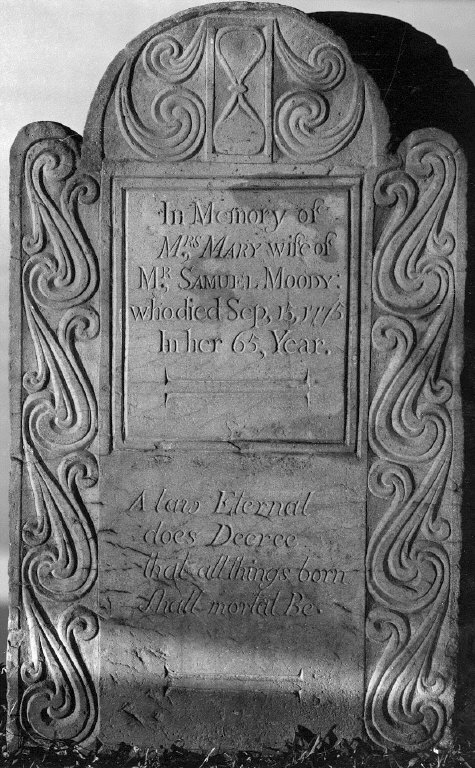 In Memory of
Mrs MARY wife of
Mr SAMUEL MOODY:
who died Sep, 15, 1775
In her 65, Year.
A law Eternal
does Decree
that all things born
shall mortal Be.